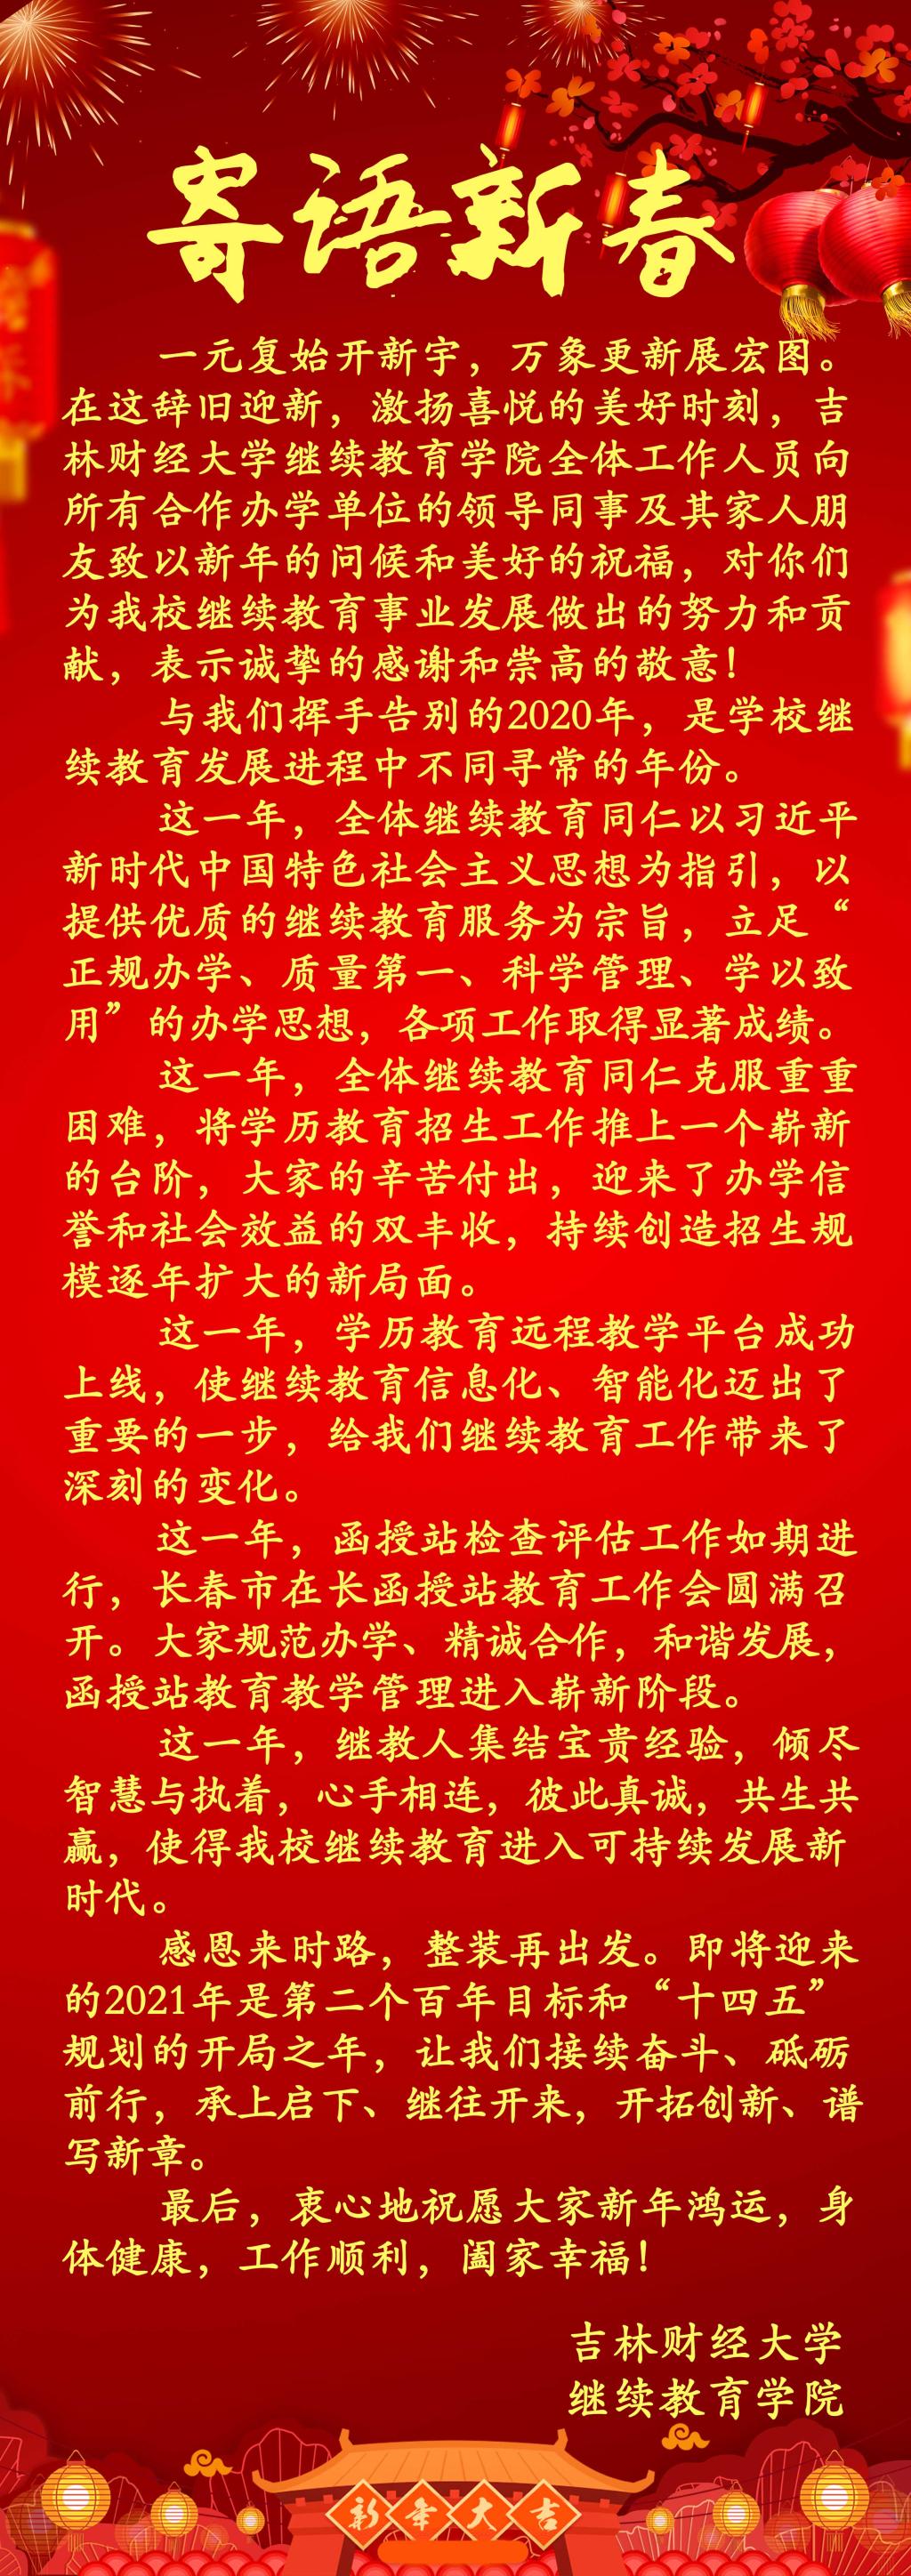 寄语新春
一元复始开新宇，万象更新展宏图。
在这辞旧迎新，激扬喜悦的美好时刻，吉
林财经大学继续教育学院全体工作人员向
所有合作办学单位的领导同事及其家人朋
友致以新年的问候和美好的祝福，对你们
为我校继续教育事业发展做出的努力和贡
献，表示诚挚的感谢和崇高的敬意！
与我们挥手告别的2020年，是学校继
续教育发展进程中不同寻常的年份。
这一年，全体继续教育同仁以习近平
新时代中国特色社会主义思想为指引，以
提供优质的继续教育服务为宗旨，立足“
正规办学、质量第一、科学管理、学以致
用”的办学思想，各项工作取得显著成绩。
这一年，全体继续教育同仁克服重重
困难，将学历教育招生工作推上一个崭新
的台阶，大家的辛苦付出，迎来了办学信
誉和社会效益的双丰收，持续创造招生规
模逐年扩大的新局面。
这一年，学历教育远程教学平台成功
上线，使继续教育信息化、智能化迈出了
重要的一步，给我们继续教育工作带来了
深刻的变化。
这一年，函授站检查评估工作如期进
行，长春市在长函授站教育工作会圆满召
开。大家规范办学、精诚合作，和谐发展，
函授站教育教学管理进入崭新阶段。
这一年，继教人集结宝贵经验，倾尽
智慧与执着，心手相连，彼此真诚，共生共
赢，使得我校继续教育进入可持续发展新
时代。
感恩来时路，整装再出发。即将迎来
的2021年是第二个百年目标和“十四五”
规划的开局之年，让我们接续奋斗、砥砺
前行，承上启下、继往开来，开拓创新、谱
写新章。
最后，衷心地祝愿大家新年鸿运，身
体健康，工作顺利，阖家幸福！
吉林财经大学
继续教育学院
新年大吉